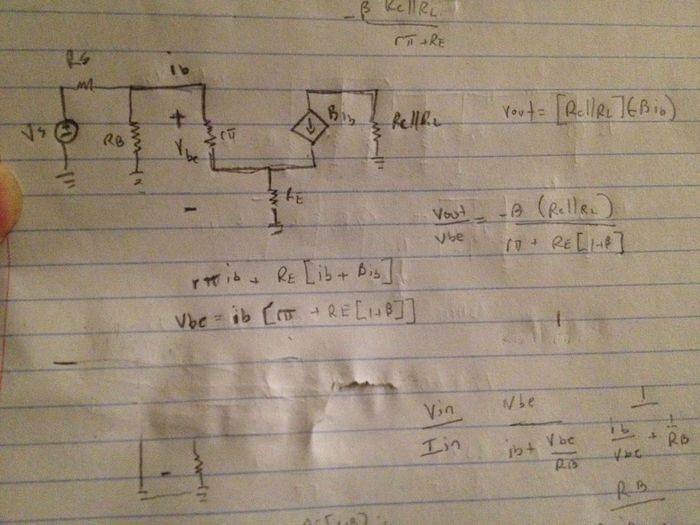 -β Rc||RL
rπ + RE
RS
ib
+
Vs
RB
Vbe
rπ
βib
Rc||RL
RE
-
Vout = [Rc||RL](-βib)
Vout / Vbe = -β (Rc||RL) / rπ + RE[1+β]
rπ ib + RE [ib + βib]
Vbe = ib [rπ + RE[1+β]]
1
Vin / Iin
Vbe / ib + Vbe/RB
1 / ib/Vbe + 1/RB
RB
-